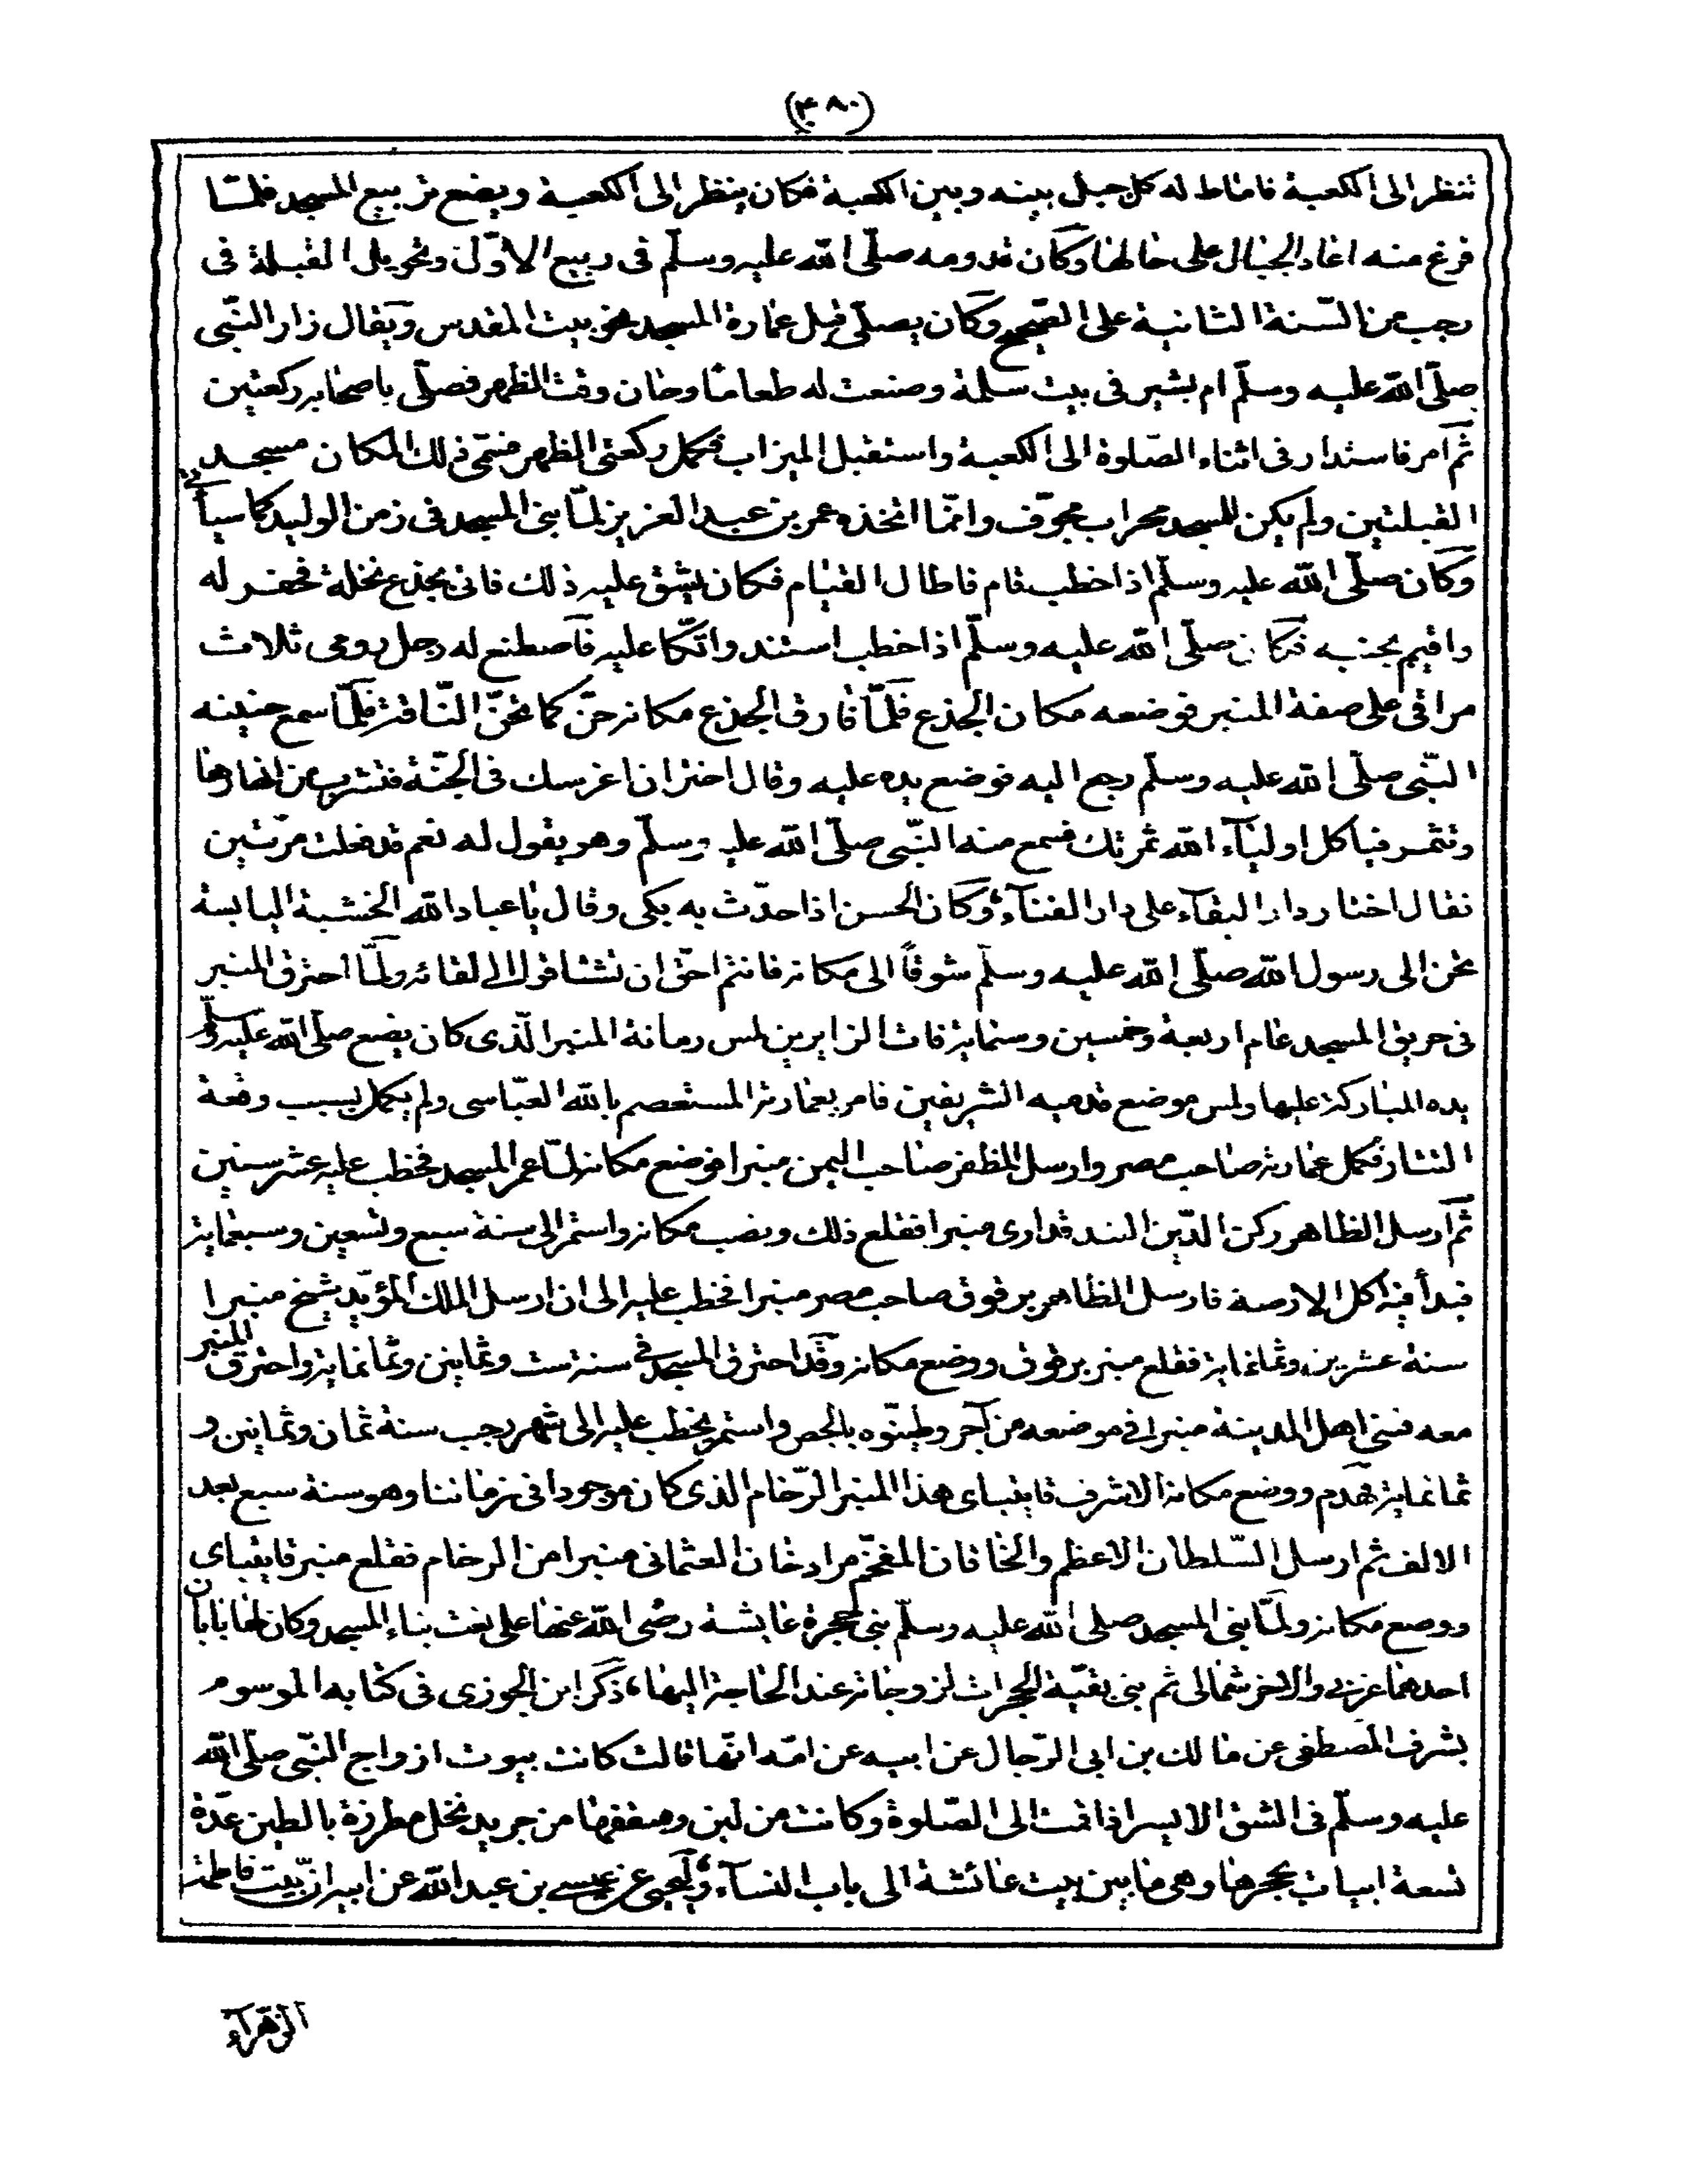 (٤٨٠)
تنظر الى الكعبة فاماط له كل جبل بينه وبين الكعبة فكان ينظر الى الكعبة ويضع تربيع المسجد فلمّا
فرغ منه اعاد الجبال على حالها وكان قدومه صلّى الله عليه وسلّم فى ربيع الاوّل وتحويل القبلة فى
رجب من السّنة الثانية على الصّحيح وكان يصلّى قبل عمارة المسجد نحو بيت المقدس ويقال زار النّبى
صلّى الله عليه وسلّم ام بشير فى بيت سلمة وصنعت له طعاما وحان وقت الظهر فصلّى باصحابه ركعتين
ثم امر فاستدار فى اثناء الصّلوة الى الكعبة واستقبل الميزاب فكمل ركعتى الظهر فسمّى ذلك المكان مسجد
القبلتين ولم يكن للمسجد محراب مجوّف وانّما اتخذه عمر بن عبد العزيز لمّا بنى المسجد فى زمن الوليد كما سيأتى
وكان صلّى الله عليه وسلّم اذا خطب قام فاطال القيام فكان يشق عليه ذلك فاتى بجذع نخلة فحفر له
واقيم بجنبه فكان صلّى الله عليه وسلّم اذا خطب استند واتّكا عليه فاصطنع له رجل رومى ثلاث
مراقى على صفة المنبر فوضعه مكان الجذع فلمّا فارق الجذع مكانه حنّ كما تحنّ النّاقة فلمّا سمع حنينه
النّبى صلّى الله عليه وسلّم رجع اليه فوضع يده عليه وقال اختر ان اغرسك فى الجنّة فتشرب من انهارها
وتثمر فياكل اولياء الله ثمرتك فسمع منه النّبى صلّى الله عليه وسلّم وهو يقول له نعم قد فعلت مرّتين
فقال اختار دار البقاء على دار الفناء وكان الحسن اذا حدّث به بكى وقال يا عباد الله الخشبة اليابسة
تحن الى رسول الله صلّى الله عليه وسلّم شوقاً الى مكانه فانتم احق ان تشتاقوا الى لقائه ولمّا احترق المنبر
فى حريق المسجد عام اربعة وخمسين وستمايه فات الزايرين لمس رمانة المنبر الّذى كان يضع صلّى الله عليه وسلّم
يده المباركة عليها ولمس موضع قدميه الشريفين فامر بعمارته المستعصم بالله العبّاسى ولم يكمل بسبب وقعة
التتار فكمل عمارته صاحب مصر وارسل المظفر صاحب اليمن منبرا فوضع مكانه لمّا عمر المسجد فخطب عليه عشر سنين
ثم ارسل الظاهر ركن الدّين البندقدارى منبرا فقلع ذلك ونصب مكانه واستمر الى سنة سبع وتسعين وسبعمايه
فبدأ فيه اكل الارضة فارسل الظاهر برقوق صاحب مصر منبرا فخطب عليه الى ان ارسل الملك المؤيّد شيخ منبرا
سنة عشرين وثمانمايه فقلع منبر برقوق ووضع مكانه وقد احترق المسجد فى سنة ست وثمانين وثمانمايه واحترق المنبر
معه فبنى اهل المدينة منبرا فى موضعه من آجر وطينّوه بالجص واستمر يخطب عليه الى شهر رجب سنة ثمان وثمانين و
ثمانمايه فهدم ووضع مكانه الاشرف قايتباى هذا المنبر الرّخام الذى كان موجودا فى زماننا وهو سنة سبع بعد
الالف ثم ارسل السّلطان الاعظم والخاقان المفخّم مراد خان العثمانى منبرا من الرخام فقلع منبر قايتباى
ووضع مكانه ولمّا بنى المسجد صلى الله عليه وسلّم بنى حجرة عايشة رضى الله عنها على نعت بناء المسجد وكان لها بابان
احدهما غربى والاخر شمالى ثم بنى بقيّة الحجرات لزوجاته عند الحاجة اليها، ذكر ابن الجوزى فى كتابه الموسوم
بشرف المصطفى عن مالك بن ابى الرّجال عن ابيه عن امّه انّها قالت كانت بيوت ازواج النّبى صلّى الله
عليه وسلّم فى الشق الايسر اذا قمت الى الصّلوة وكانت من لبن وسقفها من جريد نخل مطرزة بالطين عدّة
تسعة ابيات بحجرها وهى ما بين بيت عائشة الى باب النساء، وليحيى عن عيسى بن عبد الله عن ابيه ان بيت فاطمة
الزهراء